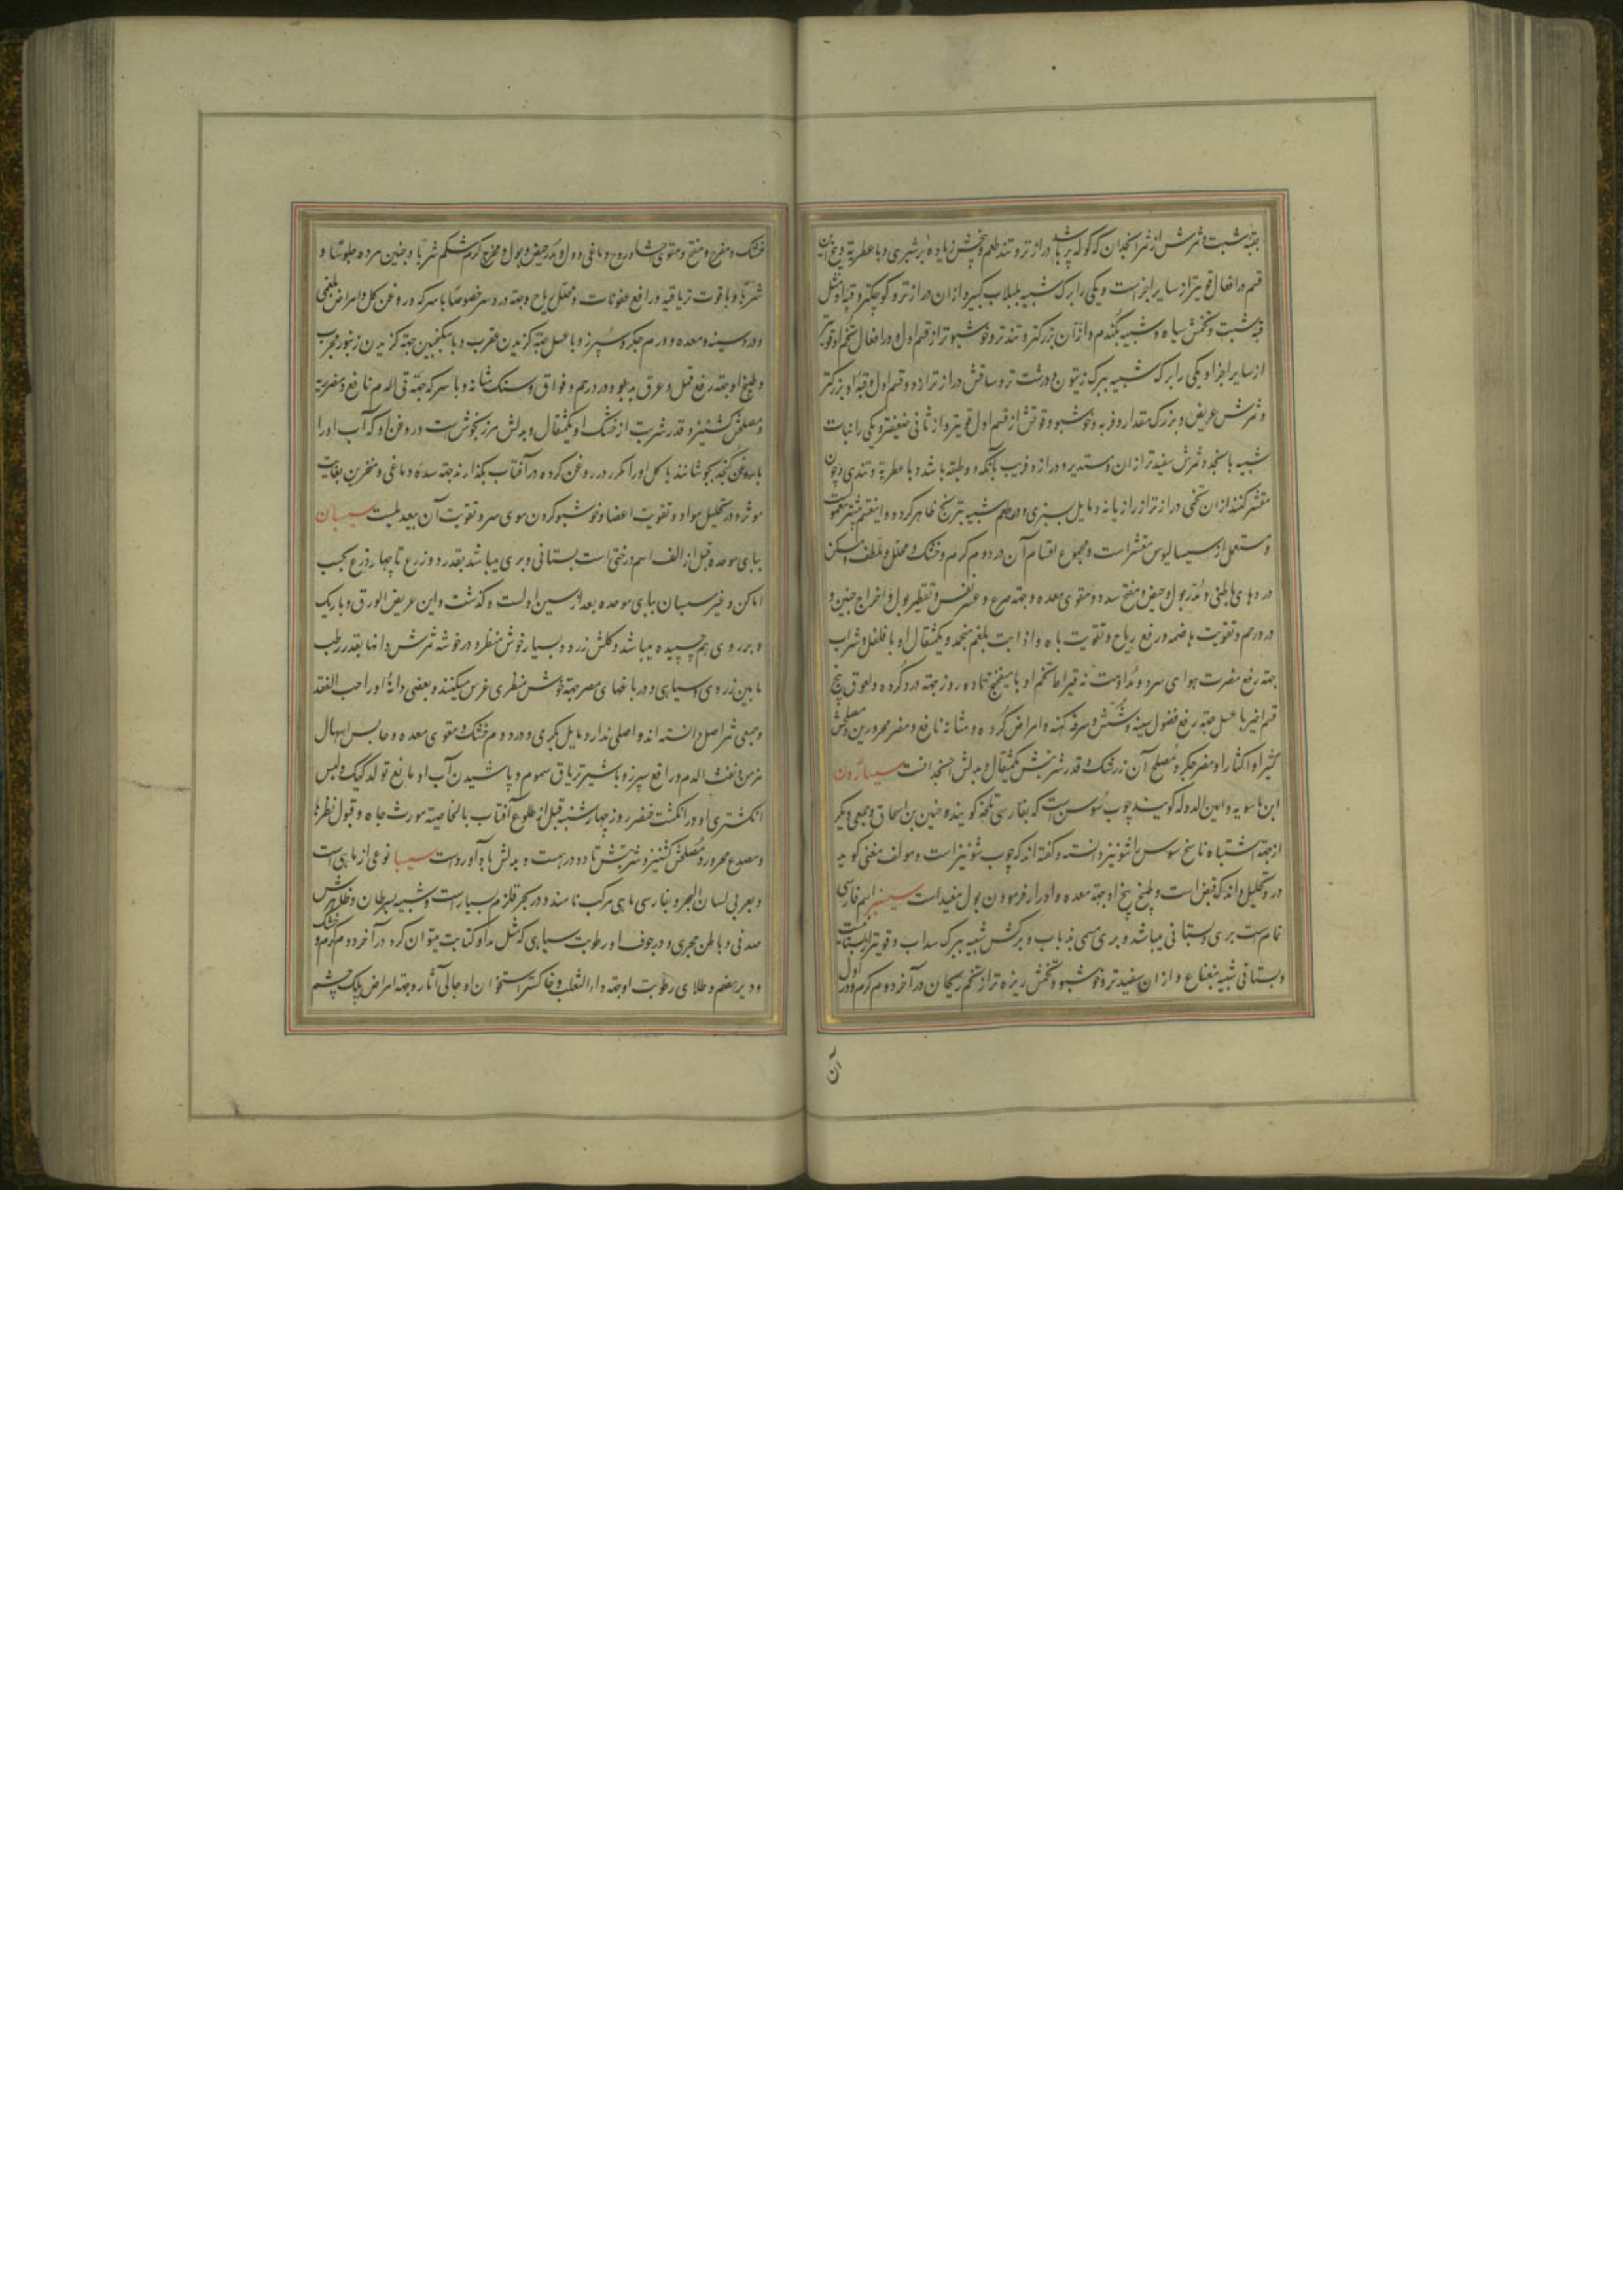 بقبهٔ شبت و ثمرش از ثمر انجدان که کوله پر باشد دراز تر و تند طعم و بیخش زیاده بر شبری و با عطریة و بیخ این
قسم در افعال قویتر از سایر اجزاست و یکی را برک شبیه بلبلاب کبیر و از ان دراز تر و کوچکتر و قبهٔ او مثل
قبهٔ شبت و تخمش سیاه و شبیه بگندم و از آن بزرکتر و تند تر و خوشبو تر از قسم اول و در افعال تخم او قویتر
از سایر اجزا و یکی را برک شبیه ببرک زیتون و درشت تر و ساقش دراز تر از دو قسم اول و قبهٔ او بزرکتر
و ثمرش عریض و بزرک مقدار و فربه و خوشبو و قوتش از قسم اول قویتر و از ثانی ضعیفتر و یکی را نبات
شبیه باسنجده و ثمرش سفیدتر از ان و مستدیر و دراز و فریب بآنکه دو طبقه باشد و با عطریة و تندی و چون
مقشر کنند از ان تخمی دراز تر از رازیانه و مایل بسبزی و در طعم شبیه بترنج ظاهر کردد و اینقسم بیشتر معمولست
و مستعمل از سیسالیوس مقشر است و مجموع اقسام آن در دوم کرم و خشک و محلل و ملطف و مسکن
دردهای باطنی و مدر بول و حیض و مفتح سدد و مقوی معده و جهة صرع و عسر نفس و تقطیر بول و اخراج جنین و
درد رحم و تقویت هاضمه و رفع ریاح و تقویت باه و اذابت بلغم منجمد و یکمثقال او با فلفل و شراب
جهة رفع مضرت هوای سرد و مداومت نه قیراط تخم او با میفختج تا ده روز جهة درد کرده و لعوق بیخ
قسم اخیر با عسل جهة رفع فضول سینه و شش و سرفه کهنه و امراض کرده و مثانه نافع و مضر محرورین و مصلحش
کثیرا و اکثار او مضر جکر و مصلح آن زرشک و قدر شربتش یکمثقال و بدلش انجدانست سیسارون
ابن ماسویه و امین الدوله کویند چوب سوسن است که بفارسی تلخه کویند و حنین بن اسحاق و جمعی دیگر
از جهة اشتباه ناسخ سوس را شونیز دانسته و کفته اند که چوب شونیز است و مولف مغنی کوید
در و تحلیل و اندک قبض است و طبخ بیخ او جهة معده و ادرار فرمودن بول مفید است سیسنبر اسم فارسی
نمام است بری و بستانی میباشد و بری مسمی بذباب و برکش شبیه ببرک سداب و قویتر از بستانیست
و بستانی شبیه بنعناع و از ان سفیدتر و خوشبو و تخمش ریزه تر از تخم ریحان در آخر دوم کرم و در اول
آن
خشک و مفرح و مفتح و مقوی احشا و روح دماغی و دل و مدر حیض و بول و مخرج کرم شکم شربا و جنین مرده جلوسا و
شربا و با قوت تریاقیه و رافع عفونات و محلل ریاح و جهة درد سر خصوصا با سرکه و روغن کل و امراض بلغمی
و درد سینه و معده و ورم جکر و سپرز و با عسل جهة کزیدن عقرب و با سکنجبین جهة کزیدن زنبور مجرب
و طبیخ او جهة رفع قمل و عرق بدبو و درد رحم و فواق و سنک مثانه و با سرکه جهة قی الدم نافع و مضر ریه
و مصلحش کشنیز و قدر شربت از خشک او یکمثقال و بدلش مرزنجوش است و روغن او که آب او را
با روغن کنجد بجوشانند یا کل او را مکرر در روغن کرده در آفتاب بکذارند جهة سده دماغی و منخرین بغایت
موثر و در تحلیل مواد و تقویت اعضا و خوشبو کردن موی سر و تقویت آن بیعدیلست سیسبان
ببای موحده قبل از الف اسم درختی است بستانی و بری میباشد بقدر دو زرع تا چهار ذرع بحسب
اماکن و غیر سبسان ببای موحده بعد از سین اولست و کذشت و این عریض الورق و باریک
و بر روی هم چسپیده میباشد و کلش زرد و بسیار خوش منظر و در خوشه ثمرش دانها بقدر رطب
مابین زردی و سیاهی و در باغهای مصر جهة خوش منظری غرس میکنند و بعضی دانهٔ او را حب الفقد
و جمعی ثمر اصل دانسته اند و اصلی ندارد مایل بکرمی و در دوم خشک و مقوی معده و حابس اسهال
مزمن و نفث الدم و رافع سپرز و با شیر تریاق سموم و پاشیدن آب او مانع تولد کیک و لبس
انکشتری او در انکشت خنصر روز چهار شنبه قبل از طلوع آفتاب بالخاصیة مورث جاه و قبول نظرها
و مصدع محرور و مصلحش کشنیز و شربتش تا دو درهمست و بدلش باد آورد است سیبیا نوعی از ماهی است
و بعربی لسان البحر و بفارسی ماهی مرکب نامند و در بحر قلزم بسیار است و شبیه بسرطان و ظاهرش
صدفی و باطن حجری و در جوف او رطوبت سیاهی که مثل مداد کتابت میتوان کرد در آخر دوم کرم و خشک
و دیر هضم و طلای رطوبت او جهة داء الثعلب و خاکستر استخوان او جالی آثار و جهة امراض پلک چشم